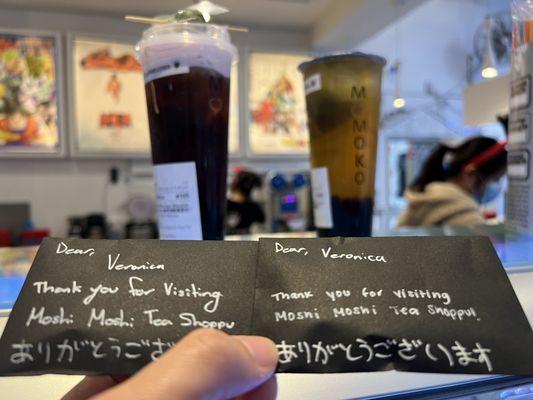 M MOKO
Dear,
Veronica
Thank you for Visiting
Moshi Moshi Tea Shoppu
ありがとうござ
Dear, Veronica
Thank you for visiting
Moshi Moshi Tea Shoppu!
ありがとうございます